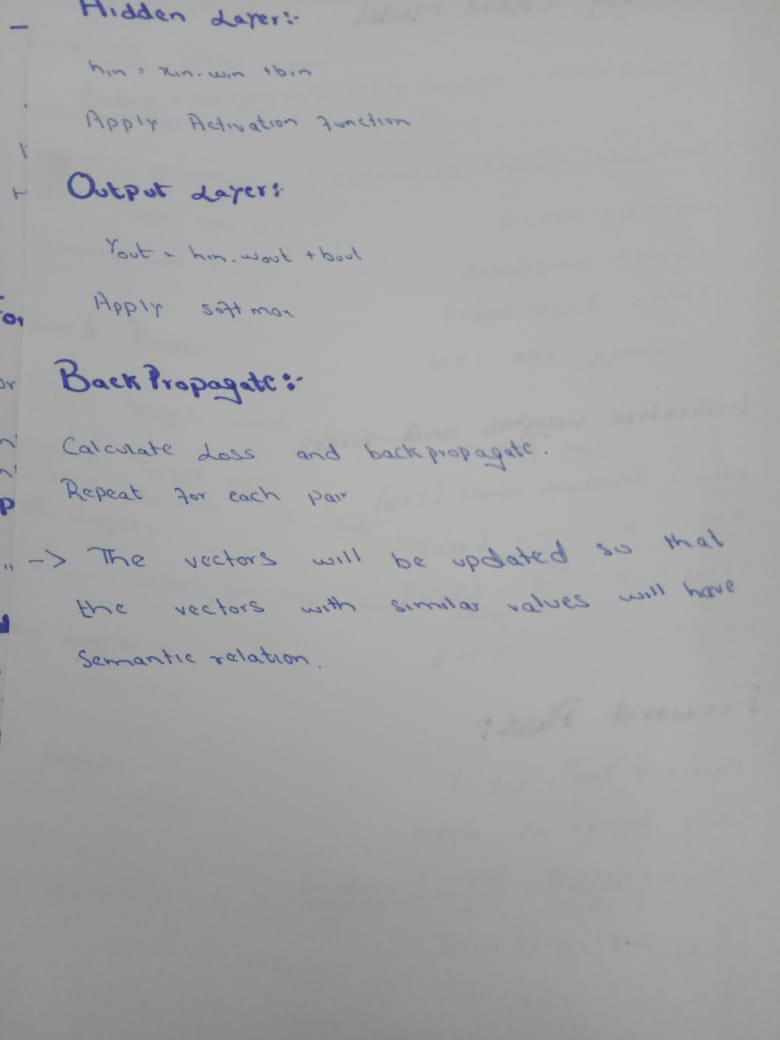 Hidden Layer:-
hin = xin.win + bin
Apply Activation Function
Output Layer:
Yout = hin.wout + bout
Apply softmax
Back Propagate:-
Calculate Loss and backpropagate.
Repeat for each pair
-> The vectors will be updated so that
the vectors with similar values will have
Semantic relation.